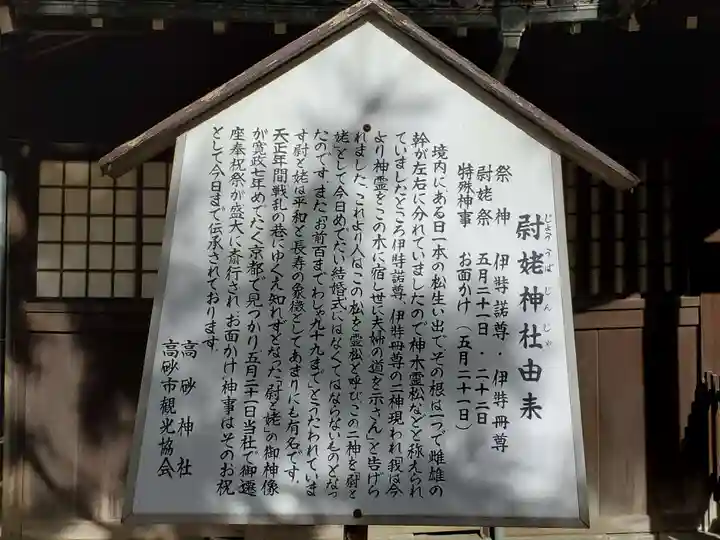 尉姥神社由来
じょううばじんじゃ
祭神 伊弉諾尊・伊弉冊尊
尉姥祭 五月二十一日・二十二日
特殊神事 お面かけ(五月二十一日)
境内にある日一本の松生い出で、その根は一つで雌雄の
幹が左右に分れていましたので神木霊松などと称えられ
ていましたところ伊弉諾尊、伊弉冊尊の二神現われ「我は今
より神霊をこの木に宿し世に夫婦の道を示さん」と告げら
れました。これより人はこの松を霊松と呼び、この二神を「尉と
姥」として今日めでたい結婚式にはなくてはならないものとなっ
たのです。また「お前百までわしゃ九十九まで」とうたわれていま
す尉と姥は平和と長寿の象徴としてあまりにも有名です。
天正年間戦乱の巷にゆくえ知れずとなった「尉と姥」の御神像
が寛政七年めでたく京都で見つかり五月二十一日当社で御遷
座奉祝祭が盛大に斎行され、お面かけ神事はそのお祝
として今日まで伝承されております。
高砂神社
高砂市観光協会